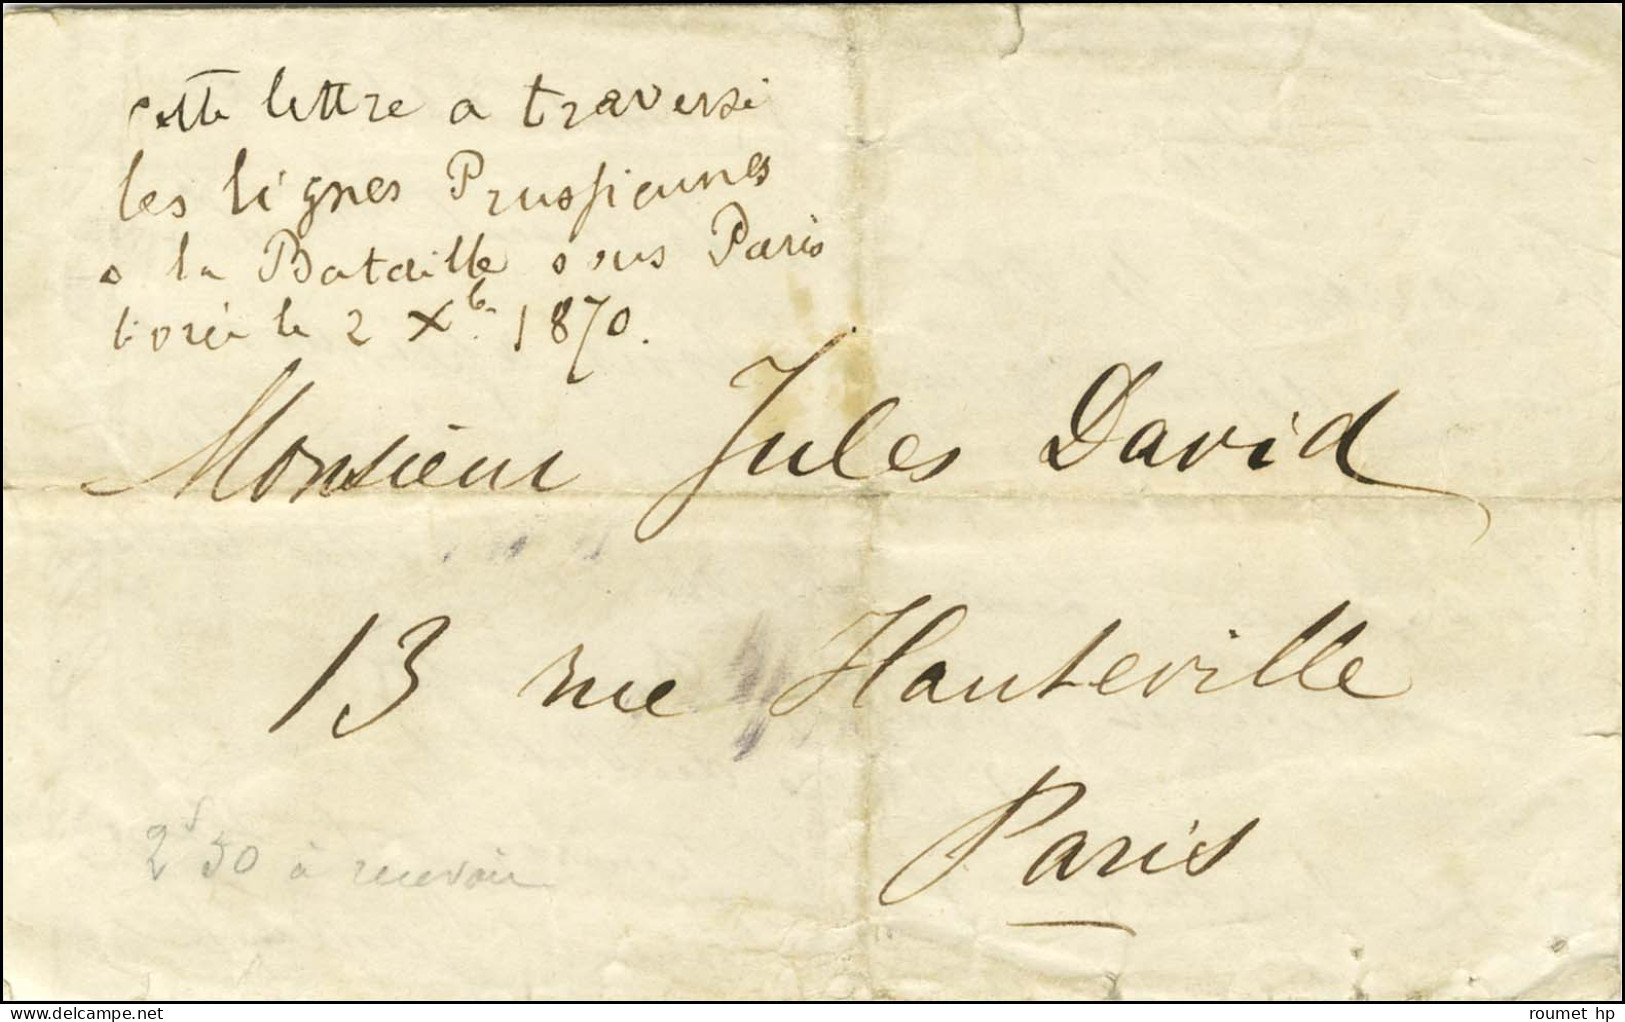 Cette lettre a traversé
les lignes Prussiennes
a la Bataille sous Paris
livrée le 2 Xb. 1870.
Monsieur Jules David
13 rue Hauteville
Paris
2f 50 à recevoir
www.delcampe.net
roumet hp